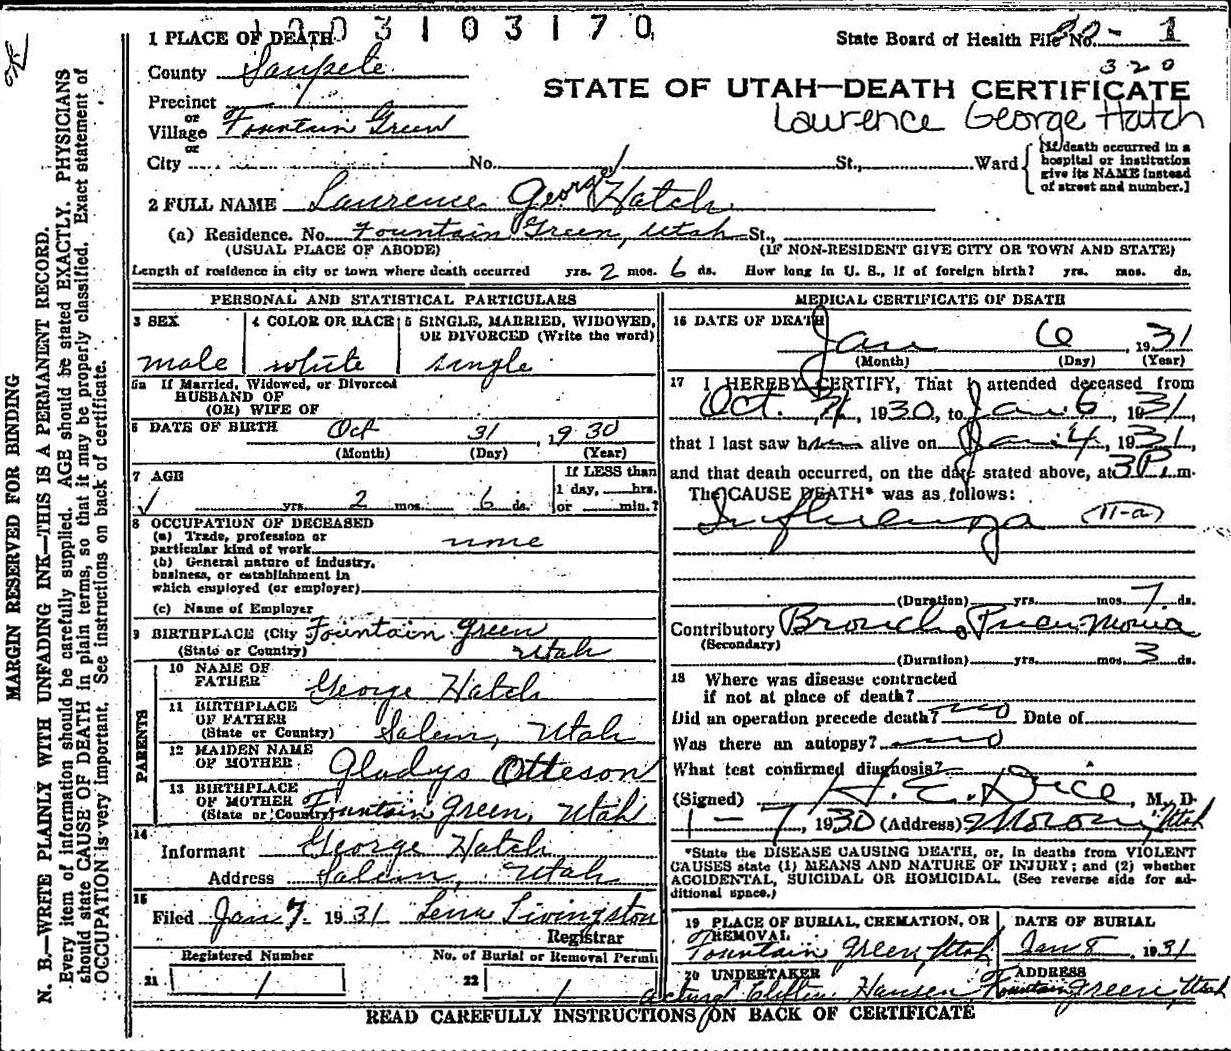 1003103170
1 PLACE OF DEATH
State Board of Health File No. 22-1
320
County Sanpete
STATE OF UTAH—DEATH CERTIFICATE
Precinct
or
Village Fountain Green
or
Lawrence George Hatch
City No. St., Ward
[If death occurred in a hospital or institution give its NAME instead of street and number.]
2 FULL NAME Laurence George Hatch
(a) Residence. No. Fountain Green, Utah St.,
(USUAL PLACE OF ABODE) (IF NON-RESIDENT GIVE CITY OR TOWN AND STATE)
Length of residence in city or town where death occurred yrs. 2 mos. 6 ds. How long in U. S., if of foreign birth? yrs. mos. ds.
PERSONAL AND STATISTICAL PARTICULARS
3 SEX
male
4 COLOR OR RACE
white
5 SINGLE, MARRIED, WIDOWED,
OR DIVORCED (Write the word)
single
5a If Married, Widowed, or Divorced
HUSBAND OF
(OR) WIFE OF
6 DATE OF BIRTH Oct 31, 1930
(Month) (Day) (Year)
7 AGE
yrs. 2 mos. 6 ds.
If LESS than
1 day, hrs.
or min.?
8 OCCUPATION OF DECEASED
(a) Trade, profession or
particular kind of work none
(b) General nature of industry,
business, or establishment in
which employed (or employer)
(c) Name of Employer
9 BIRTHPLACE (City Fountain Green
(State or Country) Utah
PARENTS
10 NAME OF
FATHER George Hatch
11 BIRTHPLACE
OF FATHER
(State or Country) Salem, Utah
12 MAIDEN NAME
OF MOTHER Gladys Otteson
13 BIRTHPLACE
OF MOTHER
(State or Country) Fountain Green, Utah
14
Informant George Hatch
Address Salem, Utah
15
Filed Jan 7, 1931 Lena Livingston
Registrar
Registered Number
21 1
No. of Burial or Removal Permit
22 1
MEDICAL CERTIFICATE OF DEATH
16 DATE OF DEATH
Jan 6 1931
(Month) (Day) (Year)
17 I HEREBY CERTIFY, That I attended deceased from
Oct. 1930, to Jan. 6, 1931,
that I last saw him alive on Jan. 4, 1931,
and that death occurred, on the date stated above, at 3 P. m.
The CAUSE DEATH* was as follows:
Influenza (11-a)
(Duration) yrs. mos. 7 ds.
Contributory Bronch. Pneumonia
(Secondary)
(Duration) yrs. mos. 3 ds.
18 Where was disease contracted
if not at place of death?
Did an operation precede death? no Date of
Was there an autopsy? no
What test confirmed diagnosis?
(Signed) H. E. Dice, M. D.
1-7, 1930 (Address) Moroni, Utah
*State the DISEASE CAUSING DEATH, or, in deaths from VIOLENT
CAUSES state (1) MEANS AND NATURE OF INJURY; and (2) whether
ACCIDENTAL, SUICIDAL OR HOMICIDAL. (See reverse side for ad-
ditional space.)
19 PLACE OF BURIAL, CREMATION, OR
REMOVAL
Fountain Green, Utah
DATE OF BURIAL
Jan 8 1931
20 UNDERTAKER
Clifton Hansen
ADDRESS
Fountain Green, Utah
READ CAREFULLY INSTRUCTIONS ON BACK OF CERTIFICATE
MARGIN RESERVED FOR BINDING
N. B.—WRITE PLAINLY WITH UNFADING INK—THIS IS A PERMANENT RECORD.
Every item of information should be carefully supplied. AGE should be stated EXACTLY. PHYSICIANS
should state CAUSE OF DEATH in plain terms, so that it may be properly classified. Exact statement of
OCCUPATION is very important. See instructions on back of certificate.